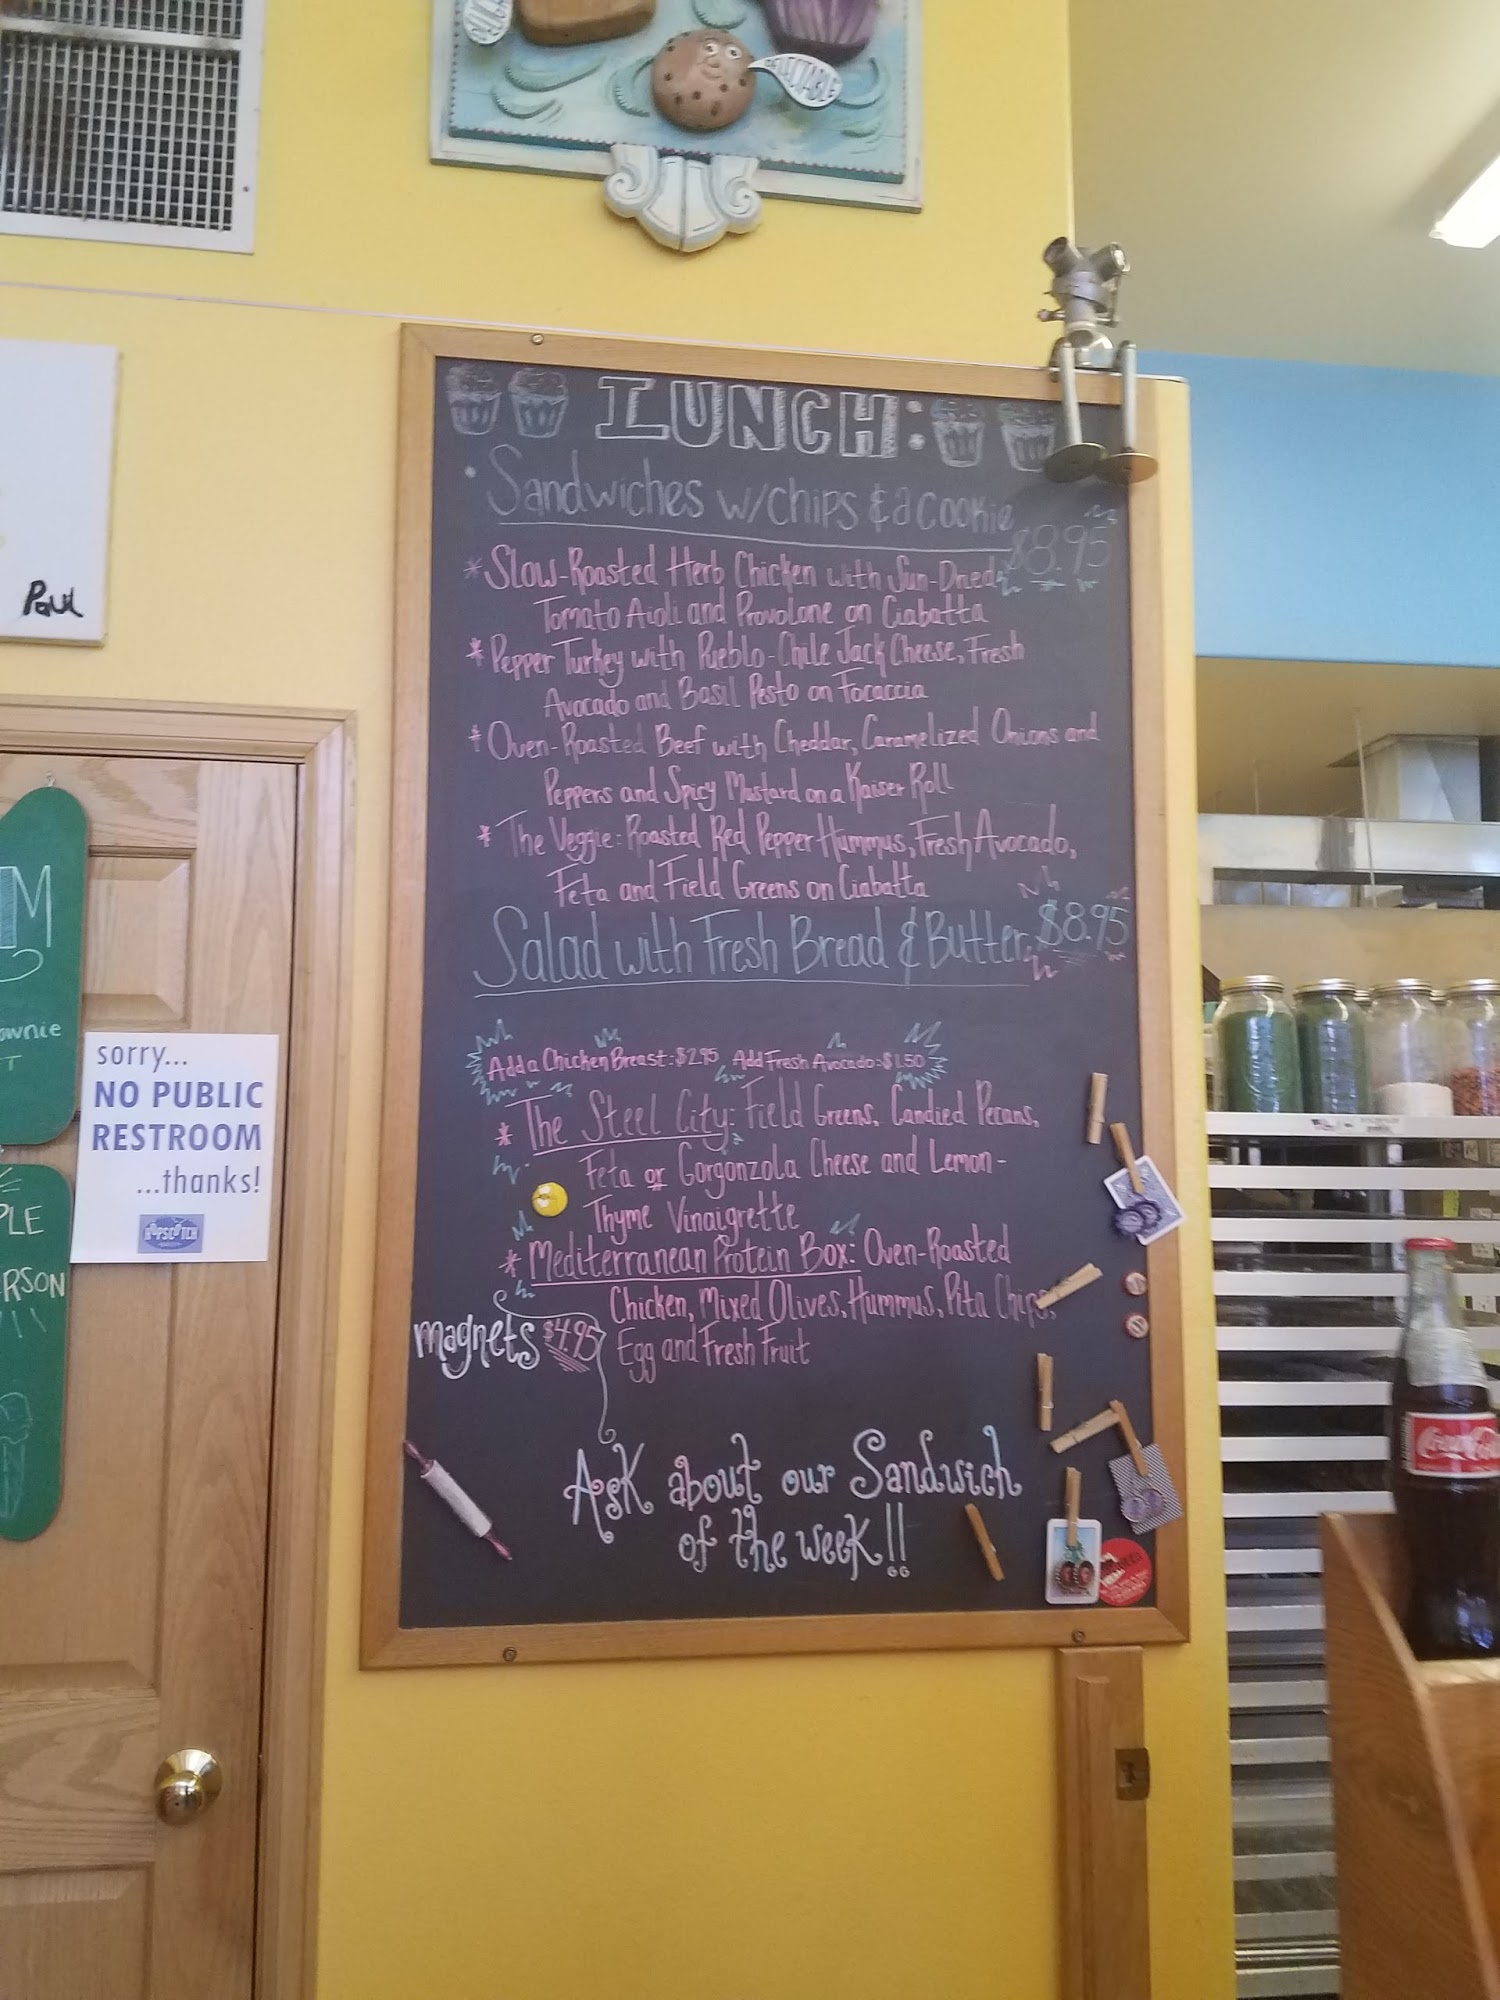 DELECTABLE
LUNCH:
Sandwiches w/chips & a cookie
$8.95
* Slow-Roasted Herb Chicken with Sun-Dried
Tomato Aioli and Provolone on Ciabatta
* Pepper Turkey with Pueblo-Chile Jack Cheese, Fresh
Avocado and Basil Pesto on Focaccia
* Oven-Roasted Beef with Cheddar, Caramelized Onions and
Peppers and Spicy Mustard on a Kaiser Roll
* The Veggie: Roasted Red Pepper Hummus, Fresh Avocado,
Feta and Field Greens on Ciabatta
Salad with Fresh Bread & Butter $8.95
Add a Chicken Breast: $2.95 Add Fresh Avocado: $1.50
* The Steel City: Field Greens, Candied Pecans,
Feta or Gorgonzola Cheese and Lemon-
Thyme Vinaigrette
* Mediterranean Protein Box: Oven-Roasted
Chicken, Mixed Olives, Hummus, Pita Chips,
Egg and Fresh Fruit
magnets $4.95
Ask about our Sandwich
of the week!!
Paul
M
ownie
T
sorry...
NO PUBLIC
RESTROOM
...thanks!
HOPSCOTCH
PLE
RSON
Coca-Cola